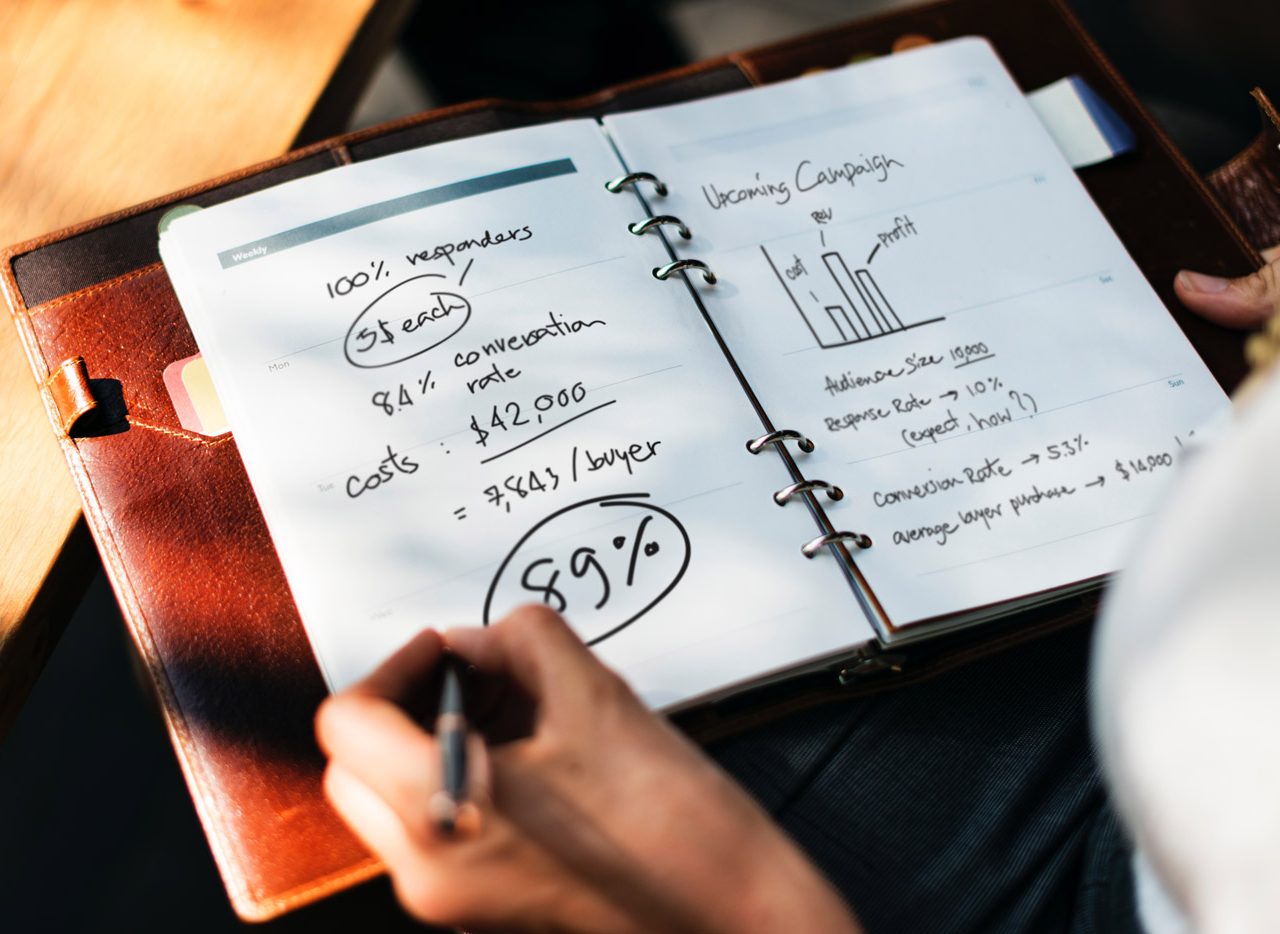 Weekly
100% responders
5$ each
Mon
8.4% conversation
rate
Tue
costs : $42,000
= 7,843 /buyer
89%
Upcoming Campaign
Rev
cost
profit
Sat
Audience Size 10,000
Response Rate → 10%
(expect, how?)
Sun
Conversion Rate → 5.3%
average buyer purchase → $14,000